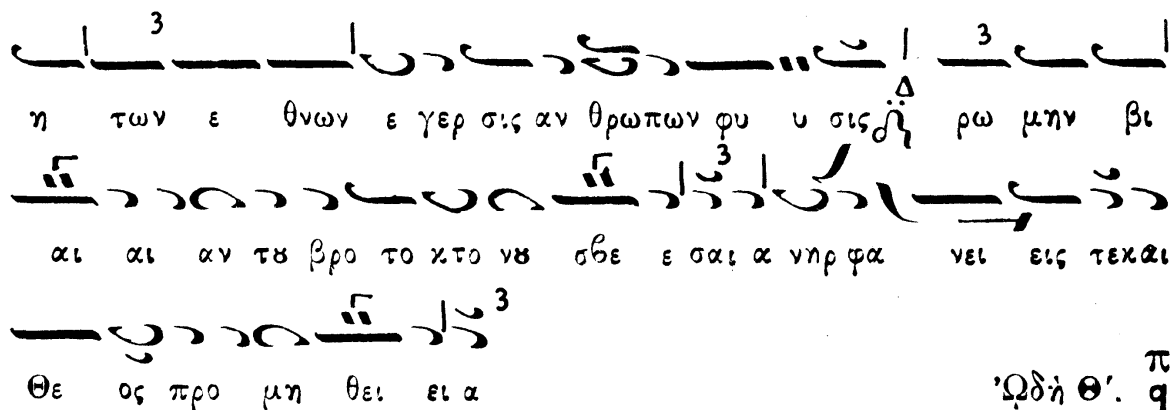 η των ε θνων ε γερ σις αν θρωπων φυ υ σις ρω μην βι
αι αι αν τȣ βρο το κτο νȣ σβε ε σαι α νηρ φα νει εις τε και
Θε ος προ μη θει ει α
Ὠδὴ Θ΄. π
q